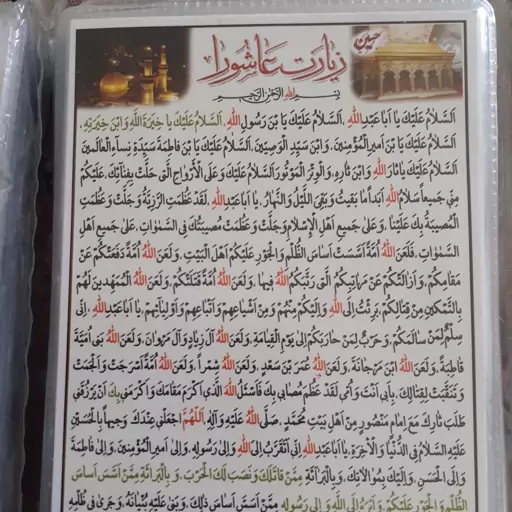 حسین
زیارت عاشورا
بِسْمِ اللهِ الرَّحْمٰنِ الرَّحیمِ
اَلسَّلامُ عَلَيْكَ يا اَبا عَبْدِ اللهِ، اَلسَّلامُ عَلَيْكَ يَا بْنَ رَسُولِ اللهِ، اَلسَّلامُ عَلَيْكَ يا خِيَرَةَ اللَّهِ وَابْنَ خِيَرَتِهِ،
اَلسَّلامُ عَلَيْكَ يَا بْنَ اَميرِ الْمُؤْمِنينَ، وَابْنَ سَيِّدِ الْوَصِيّينَ، اَلسَّلامُ عَلَيْكَ يَا بْنَ فاطِمَةَ سَيِّدَةِ نِساءِ الْعالَمينَ
اَلسَّلامُ عَلَيْكَ يا ثارَ اللهِ وَابْنَ ثارِهِ، وَالْوِتْرَ الْمَوْتُورَ اَلسَّلامُ عَلَيْكَ وَعَلَى الْاَرْواحِ الَّتى حَلَّتْ بِفِنائِكَ، عَلَيْكُمْ
مِنّى جَميعاً سَلامُ اللهِ اَبَداً ما بَقيتُ وَبَقِىَ اللَّيْلُ وَالنَّهارُ، يا اَبا عَبْدِ اللهِ، لَقَدْ عَظُمَتِ الرَّزِيَّةُ وَجَلَّتْ وَعَظُمَتِ
الْمُصيبَةُ بِكَ عَلَيْنا، وَعَلى جَميعِ اَهْلِ الْاِسْلامِ وَجَلَّتْ وَعَظُمَتْ مُصيبَتُكَ فِى السَّمٰواتِ، عَلى جَميعِ اَهْلِ
السَّمٰواتِ، فَلَعَنَ اللهُ اُمَّةً اَسَّسَتْ اَساسَ الظُّلْمِ وَالْجَوْرِ عَلَيْكُمْ اَهْلَ الْبَيْتِ، وَلَعَنَ اللهُ اُمَّةً دَفَعَتْكُمْ عَنْ
مَقامِكُمْ، وَاَزالَتْكُمْ عَنْ مَراتِبِكُمُ الَّتى رَتَّبَكُمُ اللهُ فيها، وَلَعَنَ اللهُ اُمَّةً قَتَلَتْكُمْ، وَلَعَنَ اللهُ الْمُمَهِّدينَ لَهُمْ
بِالتَّمْكينِ مِنْ قِتالِكُمْ، بَرِئْتُ اِلَى اللهِ وَاِلَيْكُمْ مِنْهُمْ وَمِنْ اَشْياعِهِمْ وَاَتْباعِهِمْ وَاَوْلِيائِهِمْ، يا اَبا عَبْدِ اللهِ، اِنّى
سِلْمٌ لِمَنْ سالَمَكُمْ، وَحَرْبٌ لِمَنْ حارَبَكُمْ اِلى يَوْمِ الْقِيامَةِ، وَلَعَنَ اللهُ آلَ زِيادٍ وَآلَ مَرْوانَ، وَلَعَنَ اللهُ بَنى اُمَيَّةَ
قاطِبَةً، وَلَعَنَ اللهُ ابْنَ مَرْجانَةَ، وَلَعَنَ اللهُ عُمَرَ بْنَ سَعْدٍ، وَلَعَنَ اللهُ شِمْراً، وَلَعَنَ اللهُ اُمَّةً اَسْرَجَتْ وَاَلْجَمَتْ
وَتَنَقَّبَتْ لِقِتالِكَ، بِاَبى اَنْتَ وَاُمّى لَقَدْ عَظُمَ مُصابى بِكَ فَاَسْئَلُ اللهَ الَّذى اَكْرَمَ مَقامَكَ وَاَكْرَمَنى بِكَ اَنْ يَرْزُقَنى
طَلَبَ ثارِكَ مَعَ اِمامٍ مَنْصُورٍ مِنْ اَهْلِ بَيْتِ مُحَمَّدٍ، صَلَّى اللهُ عَلَيْهِ وَآلِهِ، اَللّٰهُمَّ اجْعَلْنى عِنْدَكَ وَجيهاً بِالْحُسَيْنِ
عَلَيْهِ السَّلامُ فِى الدُّنْيا وَالْاٰخِرَةِ، يا اَبا عَبْدِ اللهِ اِنّى اَتَقَرَّبُ اِلَى اللهِ وَاِلى رَسُولِهِ، وَاِلى اَميرِ الْمُؤْمِنينَ، وَاِلى فاطِمَةَ
وَاِلَى الْحَسَنِ، وَاِلَيْكَ بِمُوالاتِكَ، وَبِالْبَرائَةِ مِمَّنْ قاتَلَكَ وَنَصَبَ لَكَ الْحَرْبَ، وَبِالْبَرائَةِ مِمَّنْ اَسَّسَ اَساسَ
الظُّلْمِ وَالْجَوْرِ عَلَيْكُمْ، وَاَبْرَءُ اِلَى اللهِ وَاِلى رَسُولِهِ مِمَّنْ اَسَّسَ اَساسَ ذٰلِكَ، وَبَنى عَلَيْهِ بُنْيانَهُ، وَجَرى فى ظُلْمِهِ